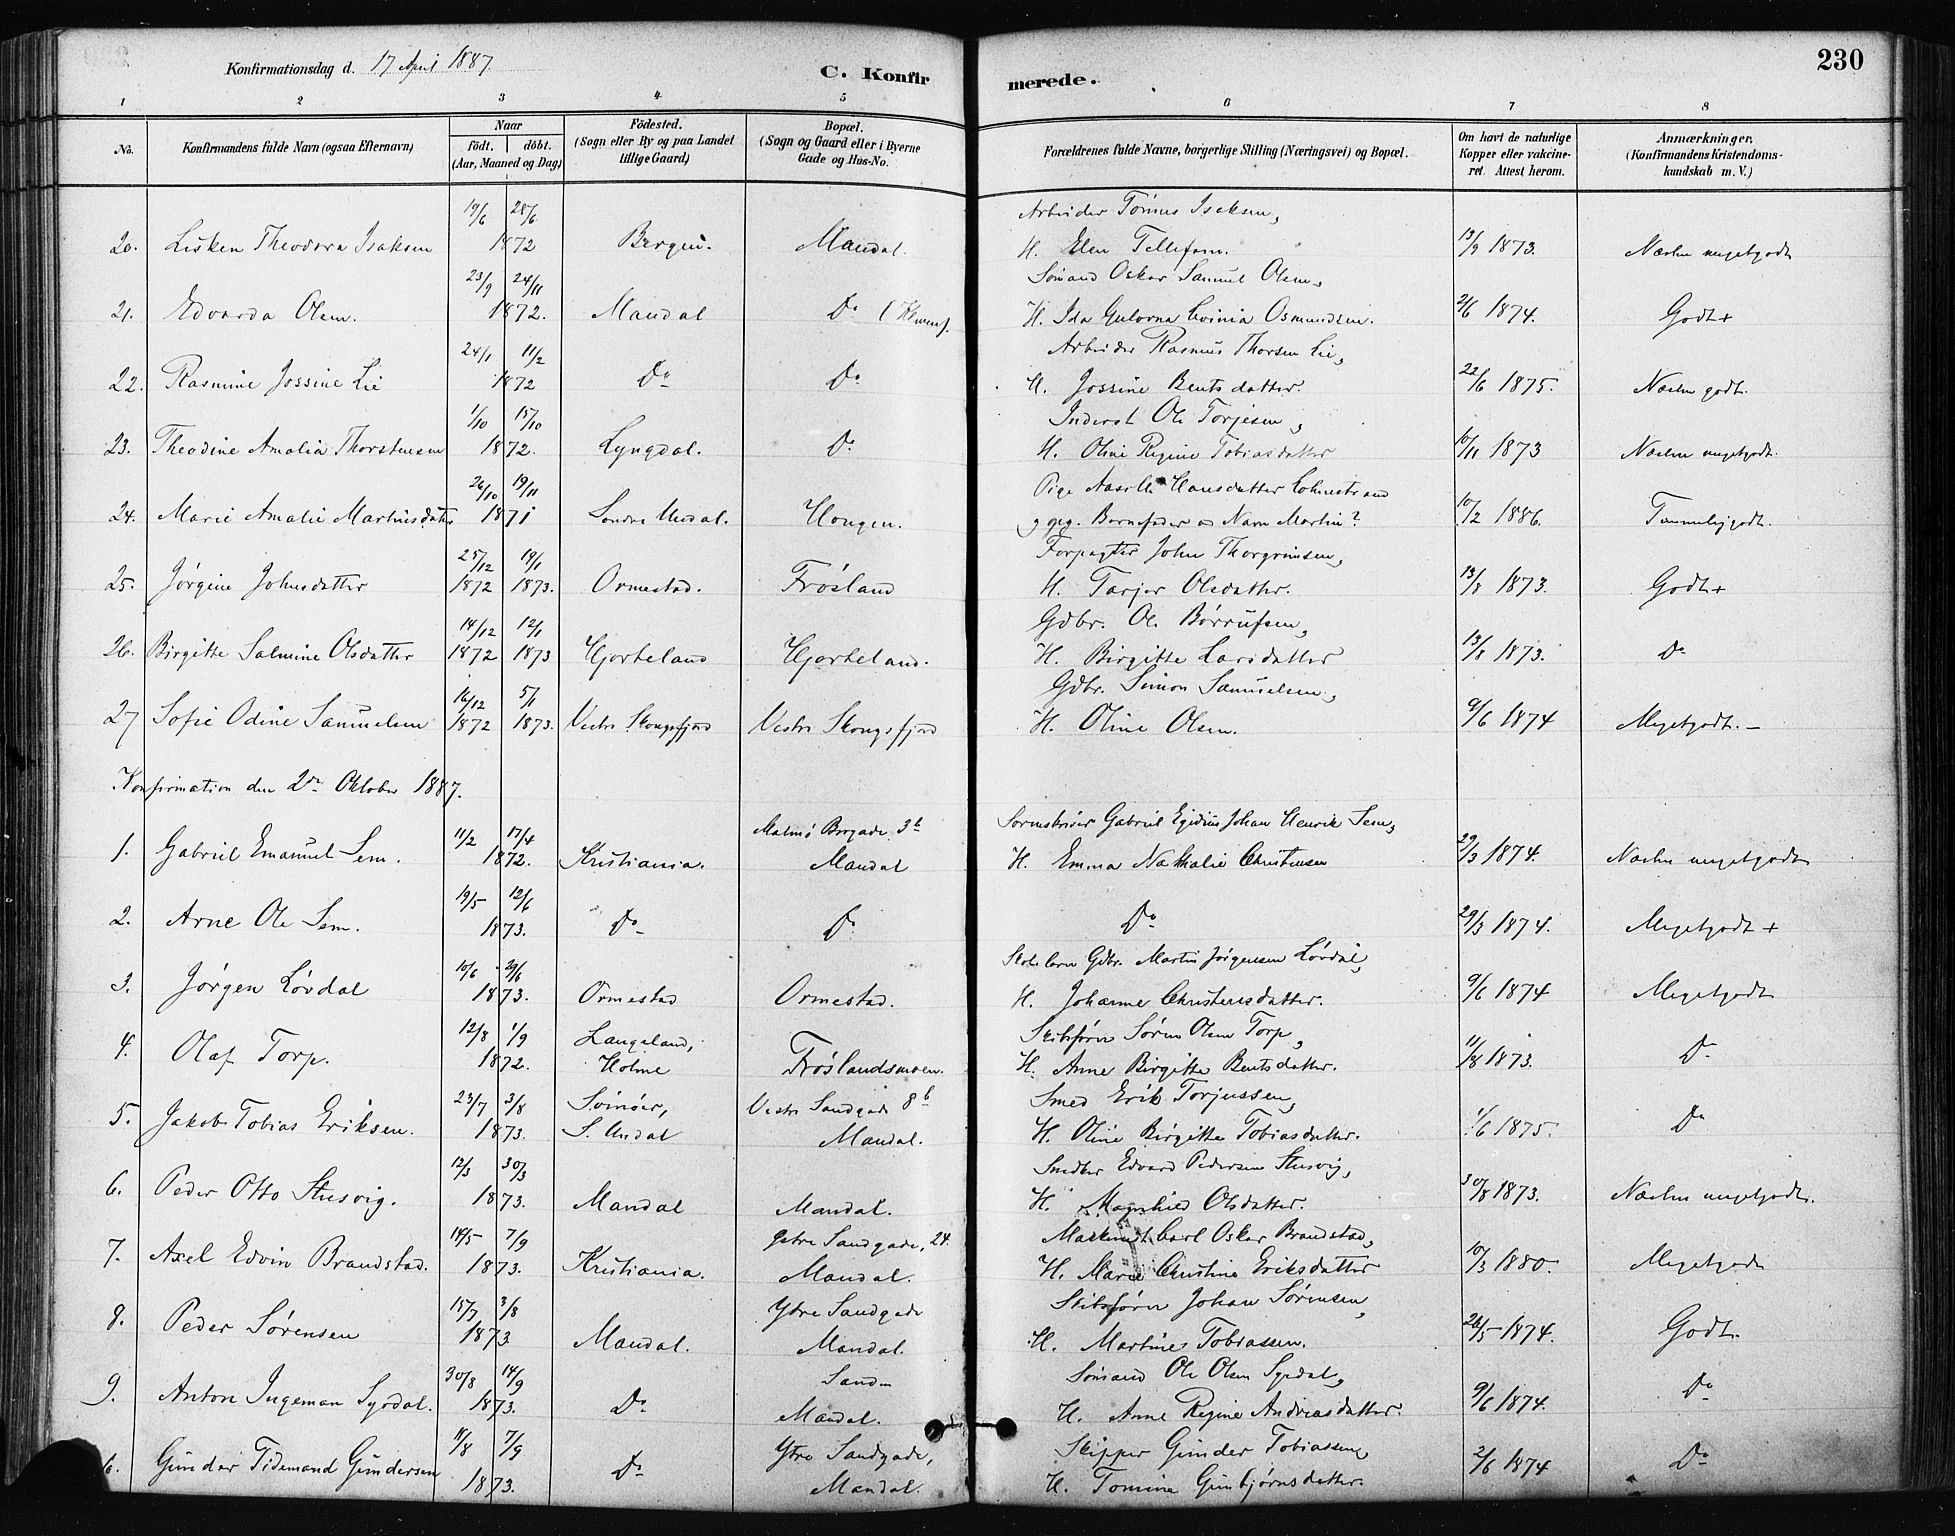 230
Konfirmationsdag d. 17 April 1887.
C. Konfir merede.
1 2 3 4 5 6 7 8
No. Konfirmandens fulde Navn (ogsaa Efternavn) Naar født. døbt. (Aar, Maaned og Dag) Födested. (Sogn eller By og paa Landet tillige Gaard) Bopæl. (Sogn og Gaard eller i Byerne Gade og Hus-No. Forældrenes fulde Navne, borgerlige Stilling (Næringsvei) og Bopæl. Om havt de naturlige Kopper eller vakcineret. Attest herom. Anmærkninger. (Konfirmandens Kristendomskundskab m. V.)
19/6 28/6 Arbeider Tönnes Isaksen,
20. Lisken Theodora Isaksen 1872 Bergen. Mandal. H. Elen Tellefsen. 13/9 1873. Næsten megetgodt
23/9 24/11 Sömand Oskar Samuel Olsen,
21. Edvarda Olsen. 1872. Mandal Do H. Ida Gulovna Osmundsen. 2/6 1874. Godt+
24/1 11/2 Arbeider Rasmus Thorsen Lie,
22. Rasmine Jossine Lie 1872 Do Do H. Jossine Bentsdatter. 22/6 1875. Næsten godt.
1/10 15/10 Inderst Ole Torjesen,
23. Theodine Amalia Thorstensen 1872. Lyngdal. Do H. Oline Regine Tobiasdatter 10/11 1873 Næsten megetgodt.
26/10 19/11 Pige Hansdatter
24. Marie Amalie Martinsdatter 1871 Söndre Undal. Hougen. opg. Barnefader Navn Martin? 10/2 1886. Temmeligodt.
25/12 19/1 Forpagter John Thorgrimsen,
25. Jørgine Johnsdatter 1872 1873. Ormestad. Frøsland H. Tarjer Olsdatter. 13/8 1873. Godt+
14/12 12/1 Gdbr. Ole Børrufsen,
26. Birgitte Salmine Olsdatter 1872 1873 Hjorteland Hjorteland. H. Birgitte Larsdatter 13/8 1873. Do
16/12 5/1 Gdbr. Simon Samuelsen,
27 Sofie Odine Samuelsen 1872 1873. Vestre Skougsfjord Vestre Skougsfjord H. Oline Olsen. 9/6 1874 Megetgodt.–
Konfirmation den 2den Oktober 1887.
11/2 17/4 Malmö Brygade 3b Gabriel Egidius Johan Henrik Sem,
1. Gabriel Emanuel Sem. 1872. Kristiania. Mandal H. Emma Nathalie Christensen 29/3 1874. Næsten megetgodt
19/5 12/6
2. Arne Ole Sem. 1873. Do Do Do 29/3 1874. Megetgodt+
10/6 29/6 Gdbr. Martin Jørgensen Løvdal,
3. Jørgen Løvdal 1873. Ormestad Ormestad. H. Johanne Christensdatter. 9/6 1874 Megetgodt
12/8 1/9 Langeland, Skibsfører Sören Olsen Torp,
4. Olaf Torp. 1872. Holme Frøslandsmoen. H. Anne Birgitte Bentsdatter. 11/8 1873. Do
23/7 3/8 Svinöer, Vestre Sandgade 8b Smed Erik Torjussen,
5. Jakob Tobias Eriksen. 1873. S. Undal Mandal. H. Oline Birgitte Tobiasdatter. 1/6 1875. Do
12/3 30/3 Edvard Pedersen Stusvig,
6. Peder Otto Stusvig. 1873. Mandal Mandal. H. Magnhild Olsdatter. 30/8 1873. Næsten megetgodt.
14/5 7/9 Ystre Sandgade, 24. Maskinist Carl Oskar Brandstad,
7. Axel Edvin Brandstad. 1873. Kristiania. Mandal. H. Marie Christine Eriksdatter 10/3 1880. Megetgodt
15/7 3/8 Ytre Sandgade Skibsfører Johan Sørensen,
8. Peder Sørensen 1873 Mandal. Mandal. H. Martine Tobiassen. 26/5 1874. Godt.
30/8 14/9 Sand– Sömand Ole Olsen Syrdal,
9. Anton Ingeman Syrdal. 1873. Do Mandal. H. Anne Regine Andreasdatter. 9/6 1874. Do
11/8 7/9 Ytre Sandgade, Skipper Gunder Tobiassen,
Gunder Tidemand Gundersen 1873. Do Mandal. H. Tomine Gunbjørnsdatter. 2/6 1874 Do